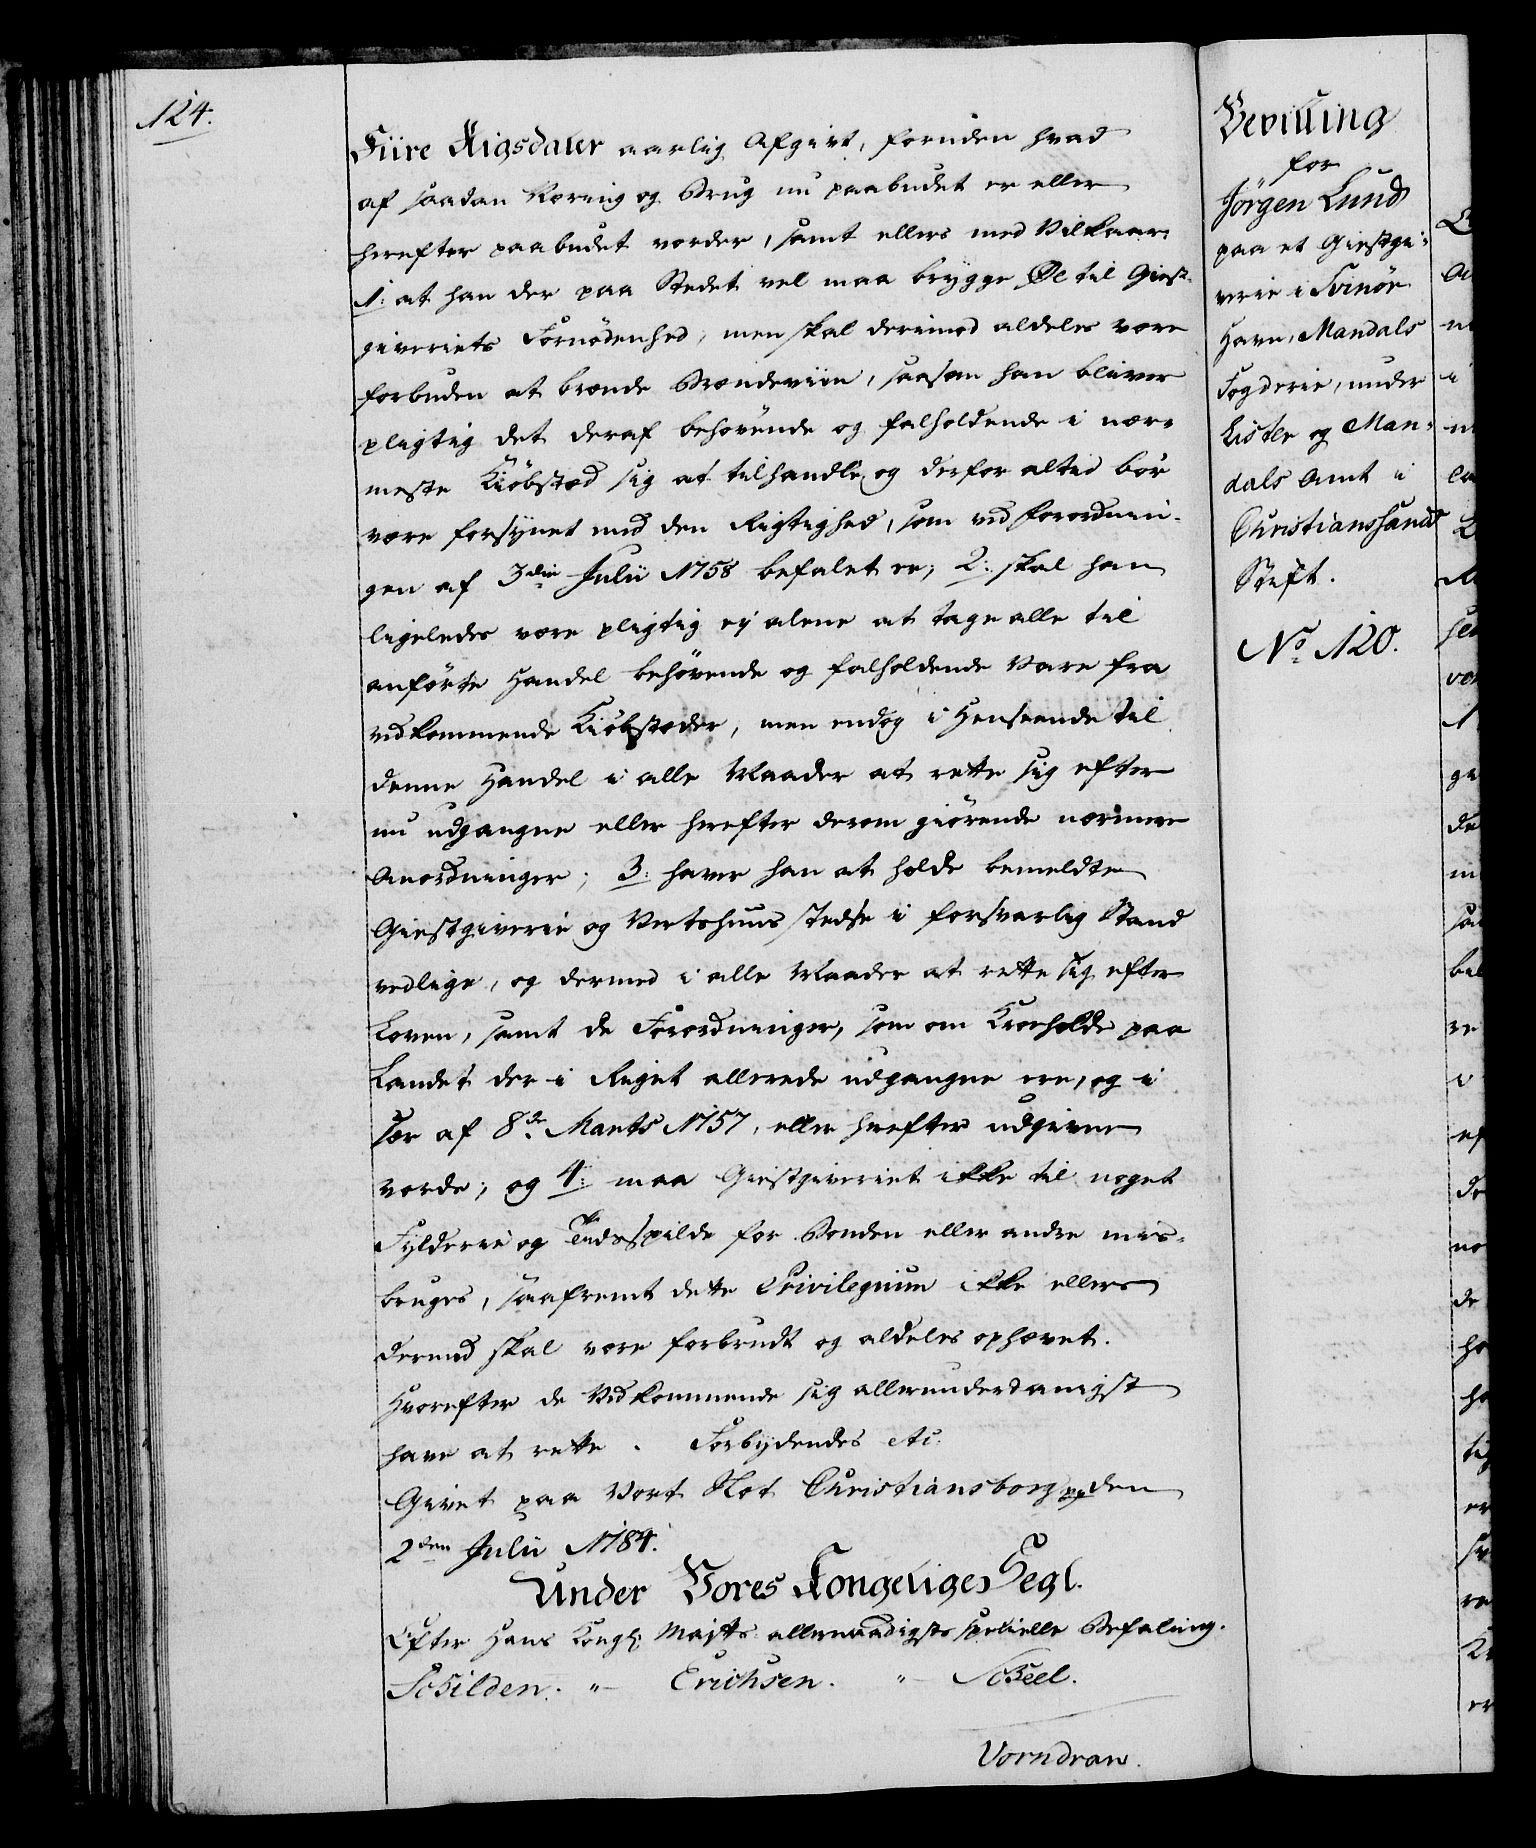 124.
Fiire Rigsdaler aarlig Afgivt, foruden hvad
af saadan Næring og Brug nu paabudet er eller
herefter paabudet vorder, samt ellers med Vilkaar:
1: at han der paa Stedet vel maa brygge Øl til Giest-
giveriets Fornödenhed, men skal derimod aldeles være
forbuden at brænde Brændeviin, saasom han bliver
pligtig det deraf behövende og falholdende i nær-
meste Kiöbstæd sig at tilhandle, og derfor altid bör
være forsÿnet med den Rigtighed, som ved Forordnin-
gen af 3die Julii 1758 befalet er; 2: skal han
ligeledes være pligtig ej alene at tage alle til
anförte Handel behövende og falholdende Vare fra
vedkommende Kiöbstæder, men endog i Henseende til
denne Handel i alle Maader at rette sig efter
nu udgangne eller herefter derom giörende nærmere
Anordninger; 3: haver han at holde bemeldte
Giestgiverie og Vertshuus stedse i forsvarlig Stand
vedlige, og dermed i alle Maader at rette sig efter
Loven, samt de Forordninger, som om Kroehold paa
Landet der i Riget allerede udgangne ere, og i
sær af 8de Martii 1757, eller herefter udgivne
vorde; og 4: maa Giestgiveriet ikke til noget
Fÿlderie og Tidsspilde for Bonden eller andre mis-
bruges, saafremt dette Privilegium ikke ellers
dermed skal være forbrudt og aldeles ophævet.
Hvorefter de Vedkommende sig allerunderdanigst
have at rette. Forbÿdendes etc:
Givet paa Vort Slot Christiansborg den
2den Julii 1784.
Under Vores Kongelige Segl.
Efter Hans Kongl: Maÿts allernaadigste specielle Befaling.
Schilden. " Erichsen. " Scheel.
Vorndran.
Bevilling
for
Jörgen Lund
paa et Giestgi-
verie i Svinör
Havn, Mandals
Fogderie, under
Lister og Man-
dals Amt i
Christianssands
Stift.
No 120.